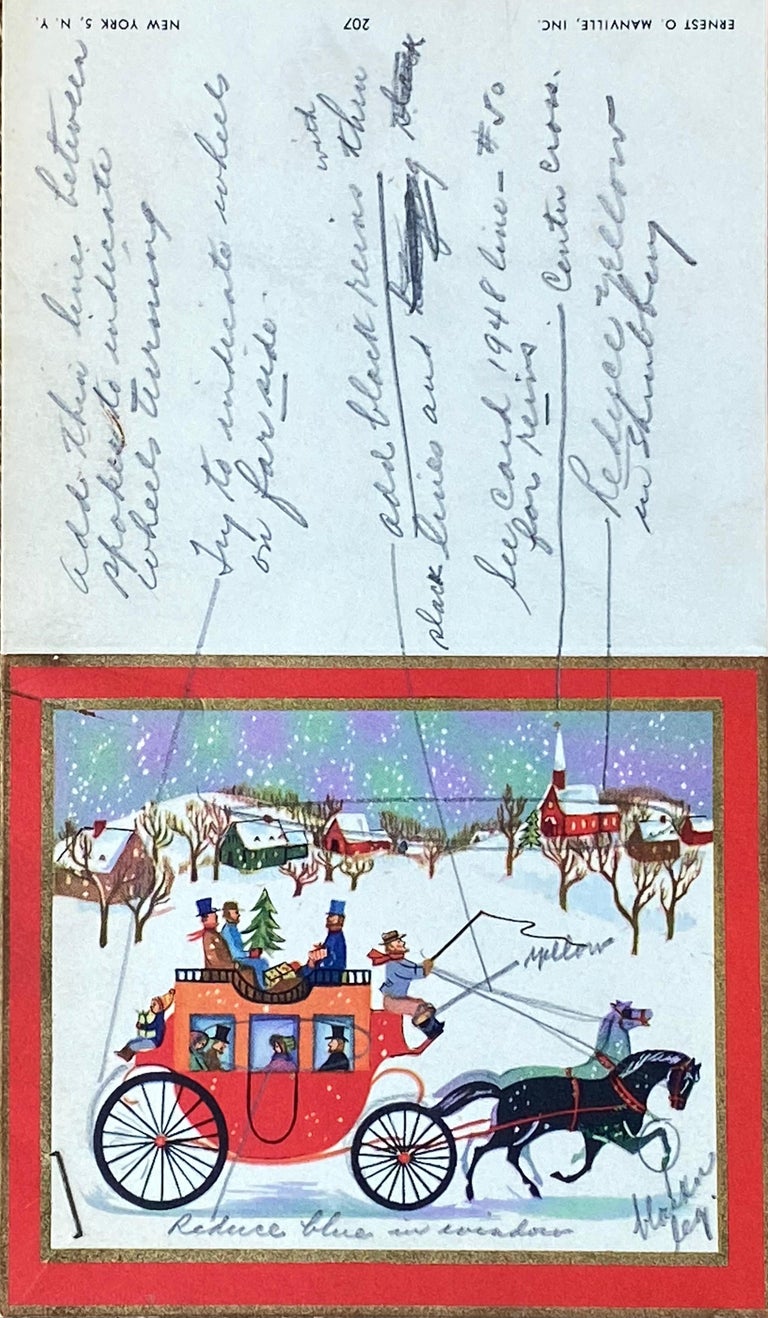 ERNEST O. MANVILLE, INC.
207
NEW YORK 5, N. Y.
add thin lines between
spokes to indicate
wheels turning
Try to indicate wheels
on far side.
with
add black reins thin
slack lines and
See card 1948 line - #50
for reins
Center cross.
Reduce yellow
in shrubbery
yellow
Reduce blue in window
leg.